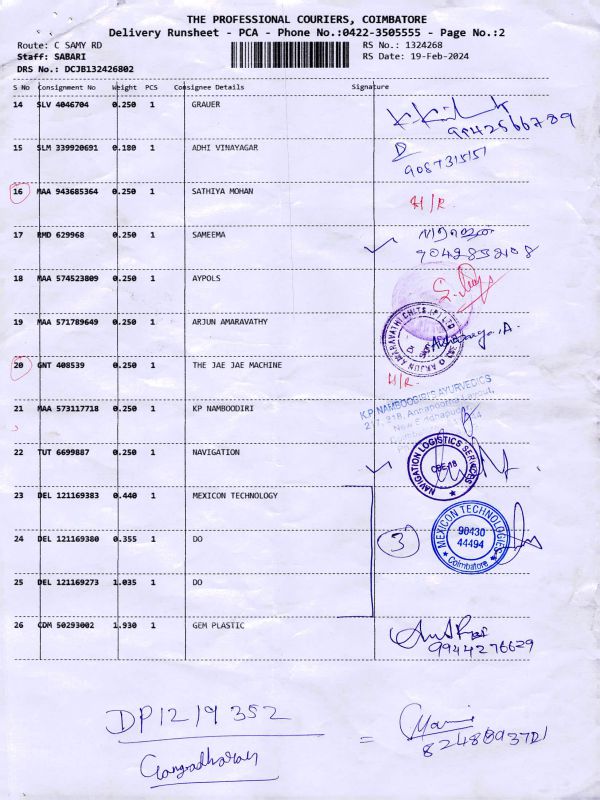 THE PROFESSIONAL COURIERS, COIMBATORE
Delivery Runsheet - PCA - Phone No.:0422-3505555 - Page No.:2
Route: C SAMY RD RS No.: 1324268
Staff: SABARI RS Date: 19-Feb-2024
DRS No.: DCJB132426802
S No Consignment No Weight PCS Consignee Details Signature
14 SLV 4046704 0.250 1 GRAUER
9942566789
15 SLM 339920691 0.180 1 ADHI VINAYAGAR
9087315151
16 MAA 943685364 0.250 1 SATHIYA MOHAN H/R.
17 RMD 629968 0.250 1 SAMEEMA
9042832108
18 MAA 574523809 0.250 1 AYPOLS
19 MAA 571789649 0.250 1 ARJUN AMARAVATHY
ARJUN AMARAVATHI CHITS (P) LTD
20 GNT 408539 0.250 1 THE JAE JAE MACHINE H/R.
21 MAA 573117718 0.250 1 KP NAMBOODIRI
K.P. NAMBOODIRI'S AYURVEDICS
217, 218, Annapoorna Layout,
22 TUT 6699887 0.250 1 NAVIGATION
NAVIGATION LOGISTICS SERVICES
CBE-18
23 DEL 121169383 0.440 1 MEXICON TECHNOLOGY
24 DEL 121169380 0.355 1 DO 3
MEXICON TECHNOLOGIES
90430
44494
Coimbatore
25 DEL 121169273 1.035 1 DO
26 CDM 50293002 1.930 1 GEM PLASTIC
9944276629
DP1219352
Gangadharan =